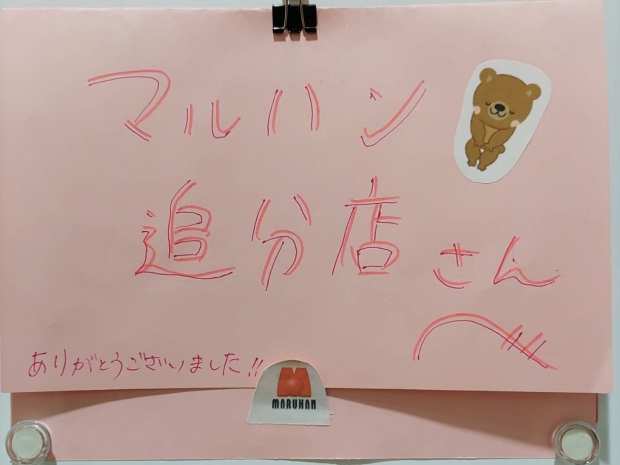 マルハン
追分店さん
へ
ありがとうございました!!
MARUHAN